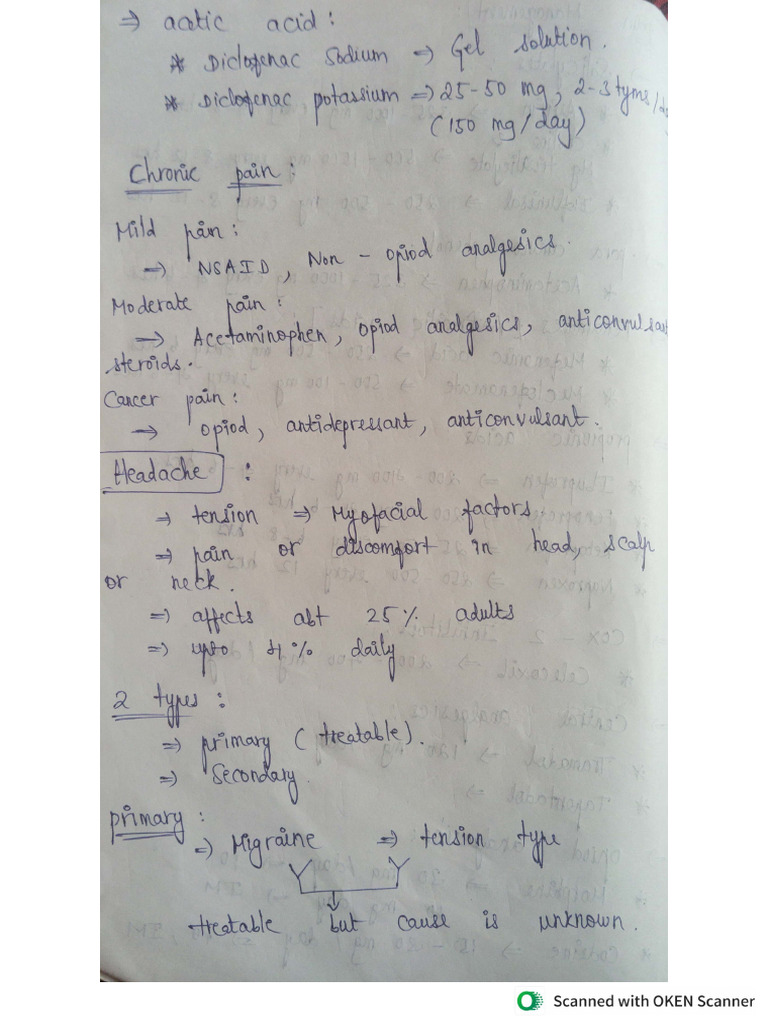 ⇒ acetic acid :
* Diclofenac Sodium ⇒ Gel solution.
* Diclofenac potassium ⇒ 25-50 mg, 2-3 tyms/
(150 mg/day)
Chronic pain :
Mild pain :
⇒ NSAID, Non - opiod analgesics.
Moderate pain :
→ Acetaminophen, opiod analgesics, anticonvulsant
steroids.
Cancer pain :
→ opiod, antidepressant, anticonvulsant.
Headache :
⇒ tension ⇒ Myofacial factors
⇒ pain or discomfort in head, scalp
or neck.
⇒ affects abt 25% adults
⇒ upto 4% daily
2 types :
⇒ primary (treatable).
⇒ Secondary.
primary :
⇒ Migraine ⇒ tension type
treatable but cause is unknown.
Scanned with OKEN Scanner